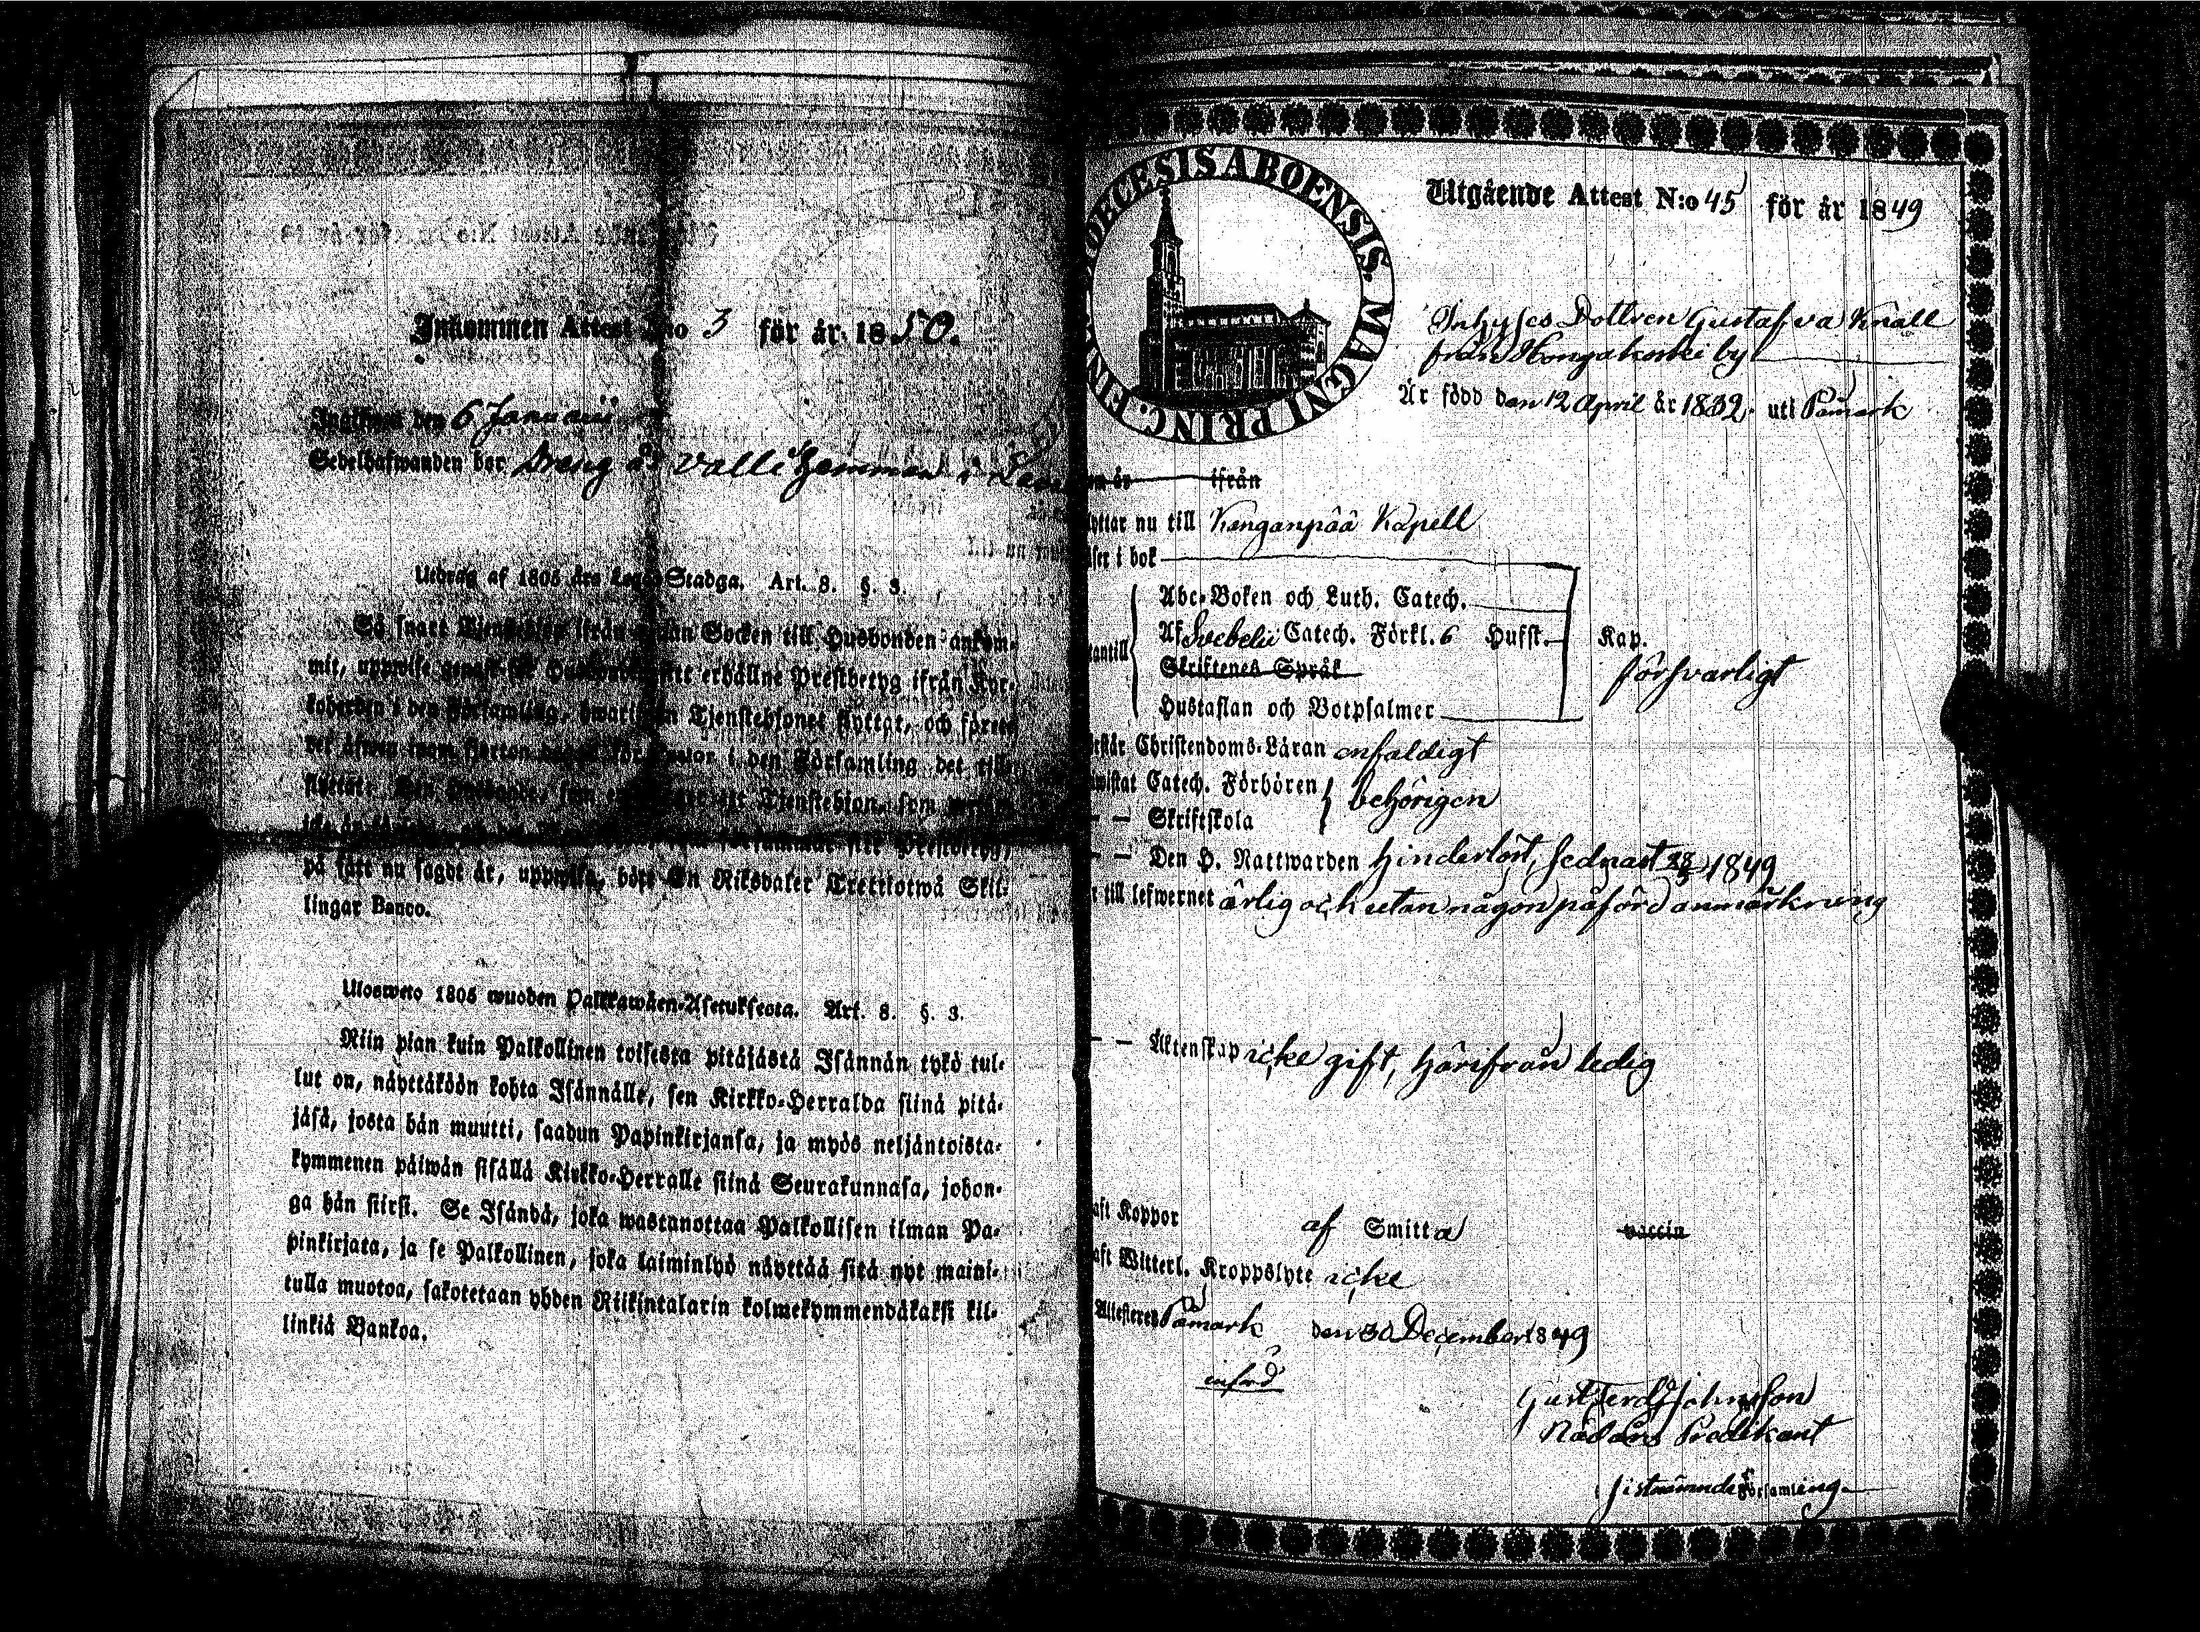 Inkommen Attest N:o 3 för år 1850.
Ingifwen den 6 Januarii
Sedelhafwanden bor Dreng å Valli hemman i
Utdrag af 1805 års Lego-Stadga. Art. 8. §. 3.
Så snart Tjenstehjon ifrån annan Socken till Husbonden ankom-
mit, uppwise genast för Husbonden sitt erhållne Prestbetyg ifrån Kyr-
koherden i den Församling, hwarifrån Tjenstehjonet flyttat, och förete
det äfwen inom fjorton dagar för Pastor i den Församling det till-
flyttat. Den Husbonde, som emottager ett Tjenstehjon, som
Prestbetyg,
på sätt nu sagdt är, uppwisa, böte En Riksdaler Trettiotwå Skil-
lingar Banco.
Ulosweto 1805 wuoden Palkkawäen-Asetuksesta. Art. 8. §. 3.
Niin pian kuin Palkollinen toisesta pitäjästä Isännän tykö tul-
lut on, näyttäköön kohta Isännälle, sen Kirkko-Herralda siinä pitä-
jäsä, josta hän muutti, saadun Papinkirjansa, ja myös neljäntoista-
kymmenen päiwän sisällä Kirkko-Herralle siinä Seurakunnasa, johon-
ga hän siirsi. Se Isändä, joka wastanottaa Palkollisen ilman Pa-
pinkirjata, ja se Palkollinen, joka laiminlyö näyttää sitä nyt maini-
tulla muotoa, sakotetaan yhden Riikintalarin kolmekymmendäkaksi kil-
linkiä Bankoa.
DIOECESIS ABOENSIS. MAGNI PRINC. FINL.
Utgående Attest N:o 45 för år 1849
Inhyses Dottren Gustafva Knall
från Hongakoski by
Är född den 12 April år 1832. uti Påmark
ifrån
flyttar nu till Kanganpää Kapell
läser i bok
Abc-Boken och Luth. Catech.
utantill Af Svebelii Catech. Förkl. 6 Hufst. Kap.
Skriftenes Språk försvarligt
Hustaflan och Botpsalmer
förstår Christendoms-Läran enfaldigt
bewistat Catech. Förhören behörigen
— — Skriftskola
— — Den H. Nattwarden hinderlöst, sednast 1849
är till lefwernet ärlig och utan någon påförd anmärkning
— — Äktenskap icke gift, härifrån ledig
haft Koppor af Smitta vaccin
haft Witterl. Kroppslyte icke
Attesteren Påmark den 30 December 1849
införd
Gust Ferd Johnsson
Nådårs Predikant
sistnämnde Församling